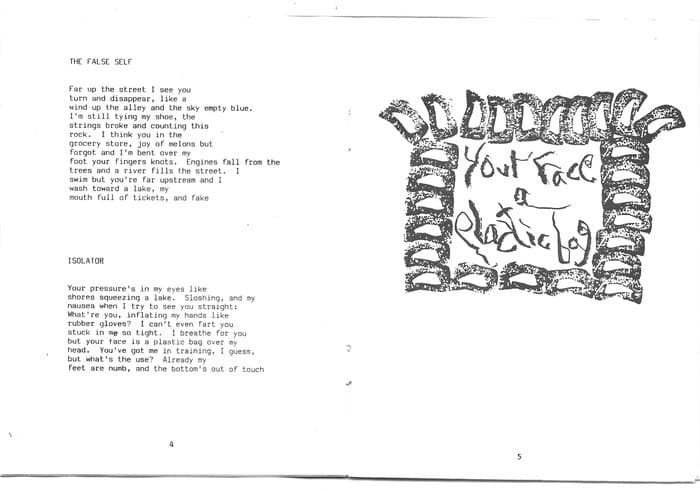 THE FALSE SELF
Far up the street I see you
turn and disappear, like a
wind up the alley and the sky empty blue.
I'm still tying my shoe, the
strings broke and counting this
rock.  I think you in the
grocery store, joy of melons but
forgot and I'm bent over my
foot your fingers knots.  Engines fall from the
trees and a river fills the street.  I
swim but you're far upstream and I
wash toward a lake, my
mouth full of tickets, and fake
ISOLATOR
Your pressure's in my eyes like
shores squeezing a lake.  Sloshing, and my
nausea when I try to see you straight:
What're you, inflating my hands like
rubber gloves?  I can't even fart you
stuck in me so tight.  I breathe for you
but your face is a plastic bag over my
head.  You've got me in training, I guess,
but what's the use?  Already my
feet are numb, and the bottom's out of touch
4
Your Face
a
plastic bag
5